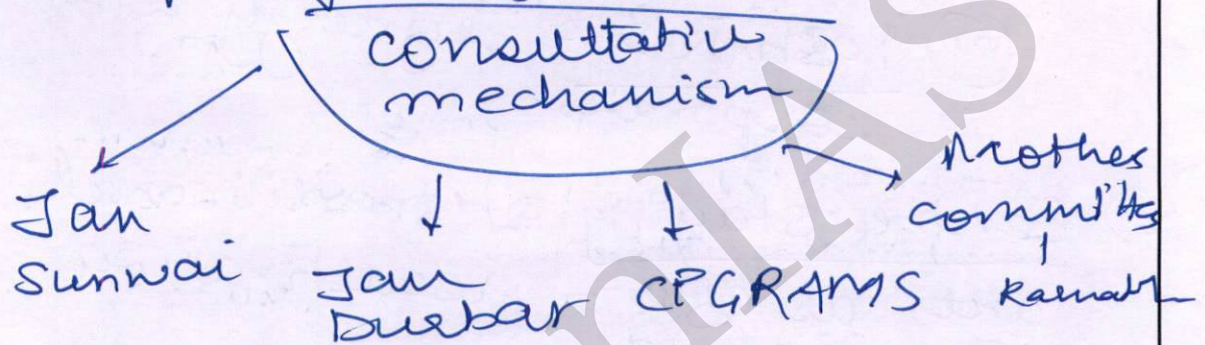 consultative
mechanism
Jan
Sunwai
Jan
Durbar
CPGRAMS
Mother
committees
nIAS